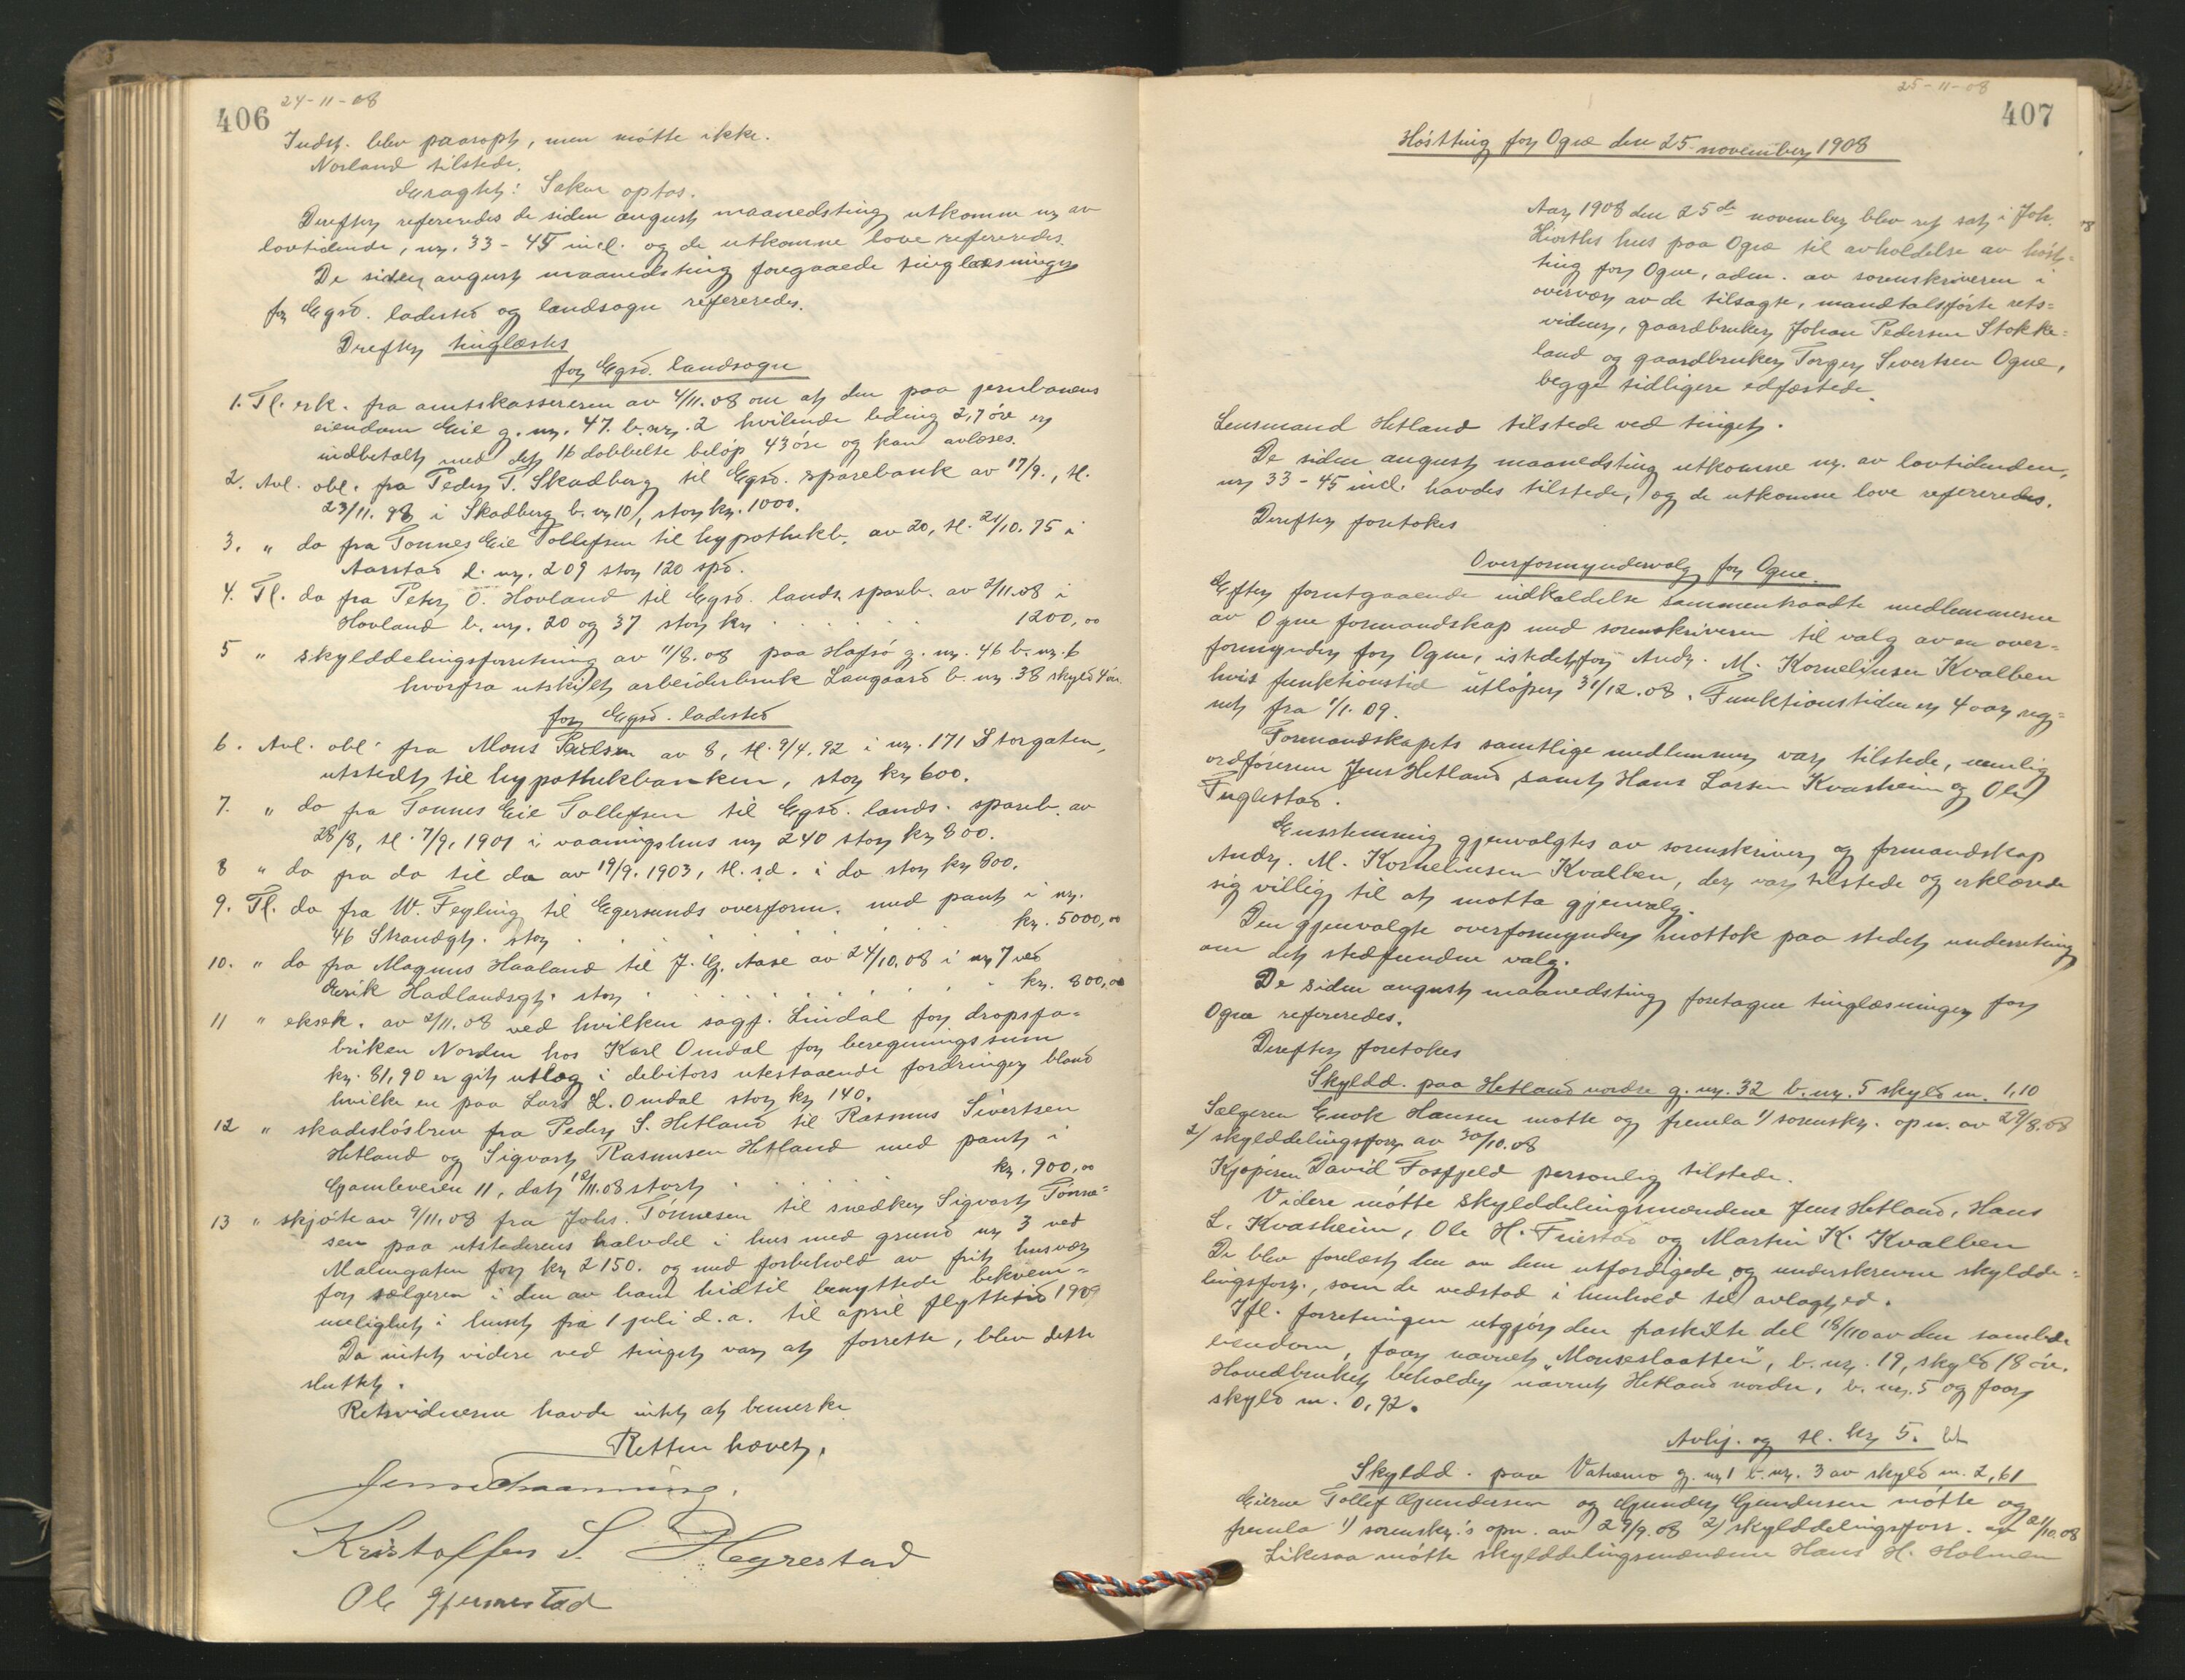 406
24-11-08
Indst. blev paaropt, men møtte ikke.
Norland tilstede.
Eragtet: Saken optas.
Derefter refereredes de siden august maanedsting utkomne nr av
lovtidende, nr. 33-45 incl. og de utkomne love refereredes.
De siden august maanedsting foregaaede tinglæsninger
for Egsd. ladested og landsogn refereredes.
Drefter tinglæstes
for Egsd. landsogn
1. Tl. erk. fra amtskassereren av 4/11.08 om at den paa jernbanens
eiendom Eie g. nr. 47. b. nr. 2 hvilende leding 2,7 øre er
indbetalt med det 16 dobbelte beløp 43 øre og kan avlæses.
2. Avl. obl. fra Peder T. Skadberg til Egsd. sparebank av 17/9., tl.
23/11. 98 i Skadberg b. nr 10, stor kr. 1000.
3. " do fra Tønnes Eie Tollefsen til hypothekb. av 20, tl. 21/10. 75 i
Aarstad l. nr. 209 stor 120 spd.
4. Tl. do fra Peter O. Hovland til Egsd. lands. spareb. av 2/11.08 i
Hovland b. nr. 20 og 37 stor kr . . . . . . 1200,00
5 " skylddelingsforretning av 11/8.08 paa Hafsø g. nr. 46 b. nr. 6
hvorfra utskilt arbeiderbruk Langaard b. nr. 38 skyld 4 øre
for Egsd. ladested
6. Avl. obl. fra Mons Paulsen av 8, tl. 9/4. 92 i nr. 171 Storgaten,
utstedt til hypothekbanken, stor kr 600.
7. " do fra Tønnes Eie Tollefsen til Egsd. lands. spareb. av
28/8, tl. 7/9, 1901 i vaaningshus nr 240 stor kr 800.
8 " do fra do til do av 19/9. 1903, tl. s.d. i do stor kr 800.
9. Tl. do fra W. Feyling til Egersunds overform. med pant i nr.
46 Strandgt. stor . . . . . . kr. 5000,00
10. " do fra Magnus Haaland til J. G. Aase av 24/10.08 i nr 7 ved
Erik Hadlandsgt. stor . . . . . . kr. 800,00
11 " eksek. av 2/11.08 ved hvilken sagf. Lindal for dropsfa-
briken Norden hos Karl Omdal for beregningssum
kr. 81,90 er git utlæg i debitors utestaaende fordringer bland
hvilke en paa Lars L. Omdal stor kr 140.
12 " skadesløsbrev fra Peder S. Hetland til Rasmus Sivertsen
Hetland og Sigvart Rasmusen Hetland med pant i
Gamleveien 11, dat 18/11.08 stort . . . . kr. 900,00
13 " skjøte av 9/11.08 fra Johs. Tønnesen til snedker Sigvart Tønne-
sen paa utstederens halvdel i hus med grund nr 3 ved
Malmgaten for kr 2150. og med forbehold av frit husvær
for sælgeren i den av ham hidtil benyttede bekvem-
melighet i huset fra 1 juli d.a. til april flyttetid 1909
Da intet videre ved tinget var at forrette, blev dette
sluttet.
Retsvidnerne havde intet at bemerke
Retten hævet.
Kristoffer S. Hegrestad
Ole Gjermestad
25-11-08
407
Høstting for Ogne den 25 november 1908
Aar 1908 den 25de november blev ret sat i Joh.
hus paa Ogne til avholdelse av høst-
ting for Ogne, adm. av sorenskriveren i
overvær av de tilsagte, mandtalsførte rets-
vidner, gaardbruker Johan Pedersen Stokke-
land og gaardbruker Torger Sivertsen Ogne,
begge tidligere edfæstede.
Lensmand Hetland tilstede ved tinget.
De siden august maanedsting utkomne nr. av lovtidenden,
nr 33-45 incl. havdes tilstede, og de utkomne love refereredes.
Derefter foretokes
Overformyndervalg for Ogne.
Efter forutgaaende indkaldelse sammentraadte medlemmerne
av Ogne formandskap med sorenskriveren til valg av en over-
formynder for Ogne, istedetfor Andr. M. Korneliusen Kvalben
hvis funktionstid utløper 31/12.08. Funktionstiden er 4 aar reg-
net fra 1/1. 09.
Formandskapets samtlige medlemmer var tilstede, nemlig
ordføreren Jens Hetland samt Hans Larsen Kvasheim og Ole
Fuglestad.
Enstemmig gjenvalgtes av sorenskriver og formandskap
Andr. M. Korneliusen Kvalben, der var tilstede og erklærede
sig villig til at motta gjenvalg.
Den gjenvalgte overformynder mottok paa stedet underretning
om det stedfundne valg.
De siden august maanedsting foretagne tinglæsninger for
Ogne refereredes.
Derefter foretokes
Skyldd. paa Hetland nordre g. nr. 32 b. nr. 5 skyld m. 1,10
Sælgeren Enok Hansen møtte og fremla 1) sorenskr. opn. av 29/8.08
2) skylddelingsforr av 30/10.08
Kjøperen David Fosfjeld personlig tilstede.
Videre møtte skylddelingsmændene Jens Hetland, Hans
L. Kvasheim, Ole H. Friestad og Martin K. Kvalben
De blev forelæst den av dem utfærdigede og underskrevne skyldde-
lingsforr., som de vedstod i henhold til avlagt ed.
Ifl. forretningen utgjør den fraskilte del 18/110 av den samlede
eiendom, faar navnet "Monseslaatten", b. nr. 19, skyld 18 øre.
Hovedbruket beholder navnet Hetland nordre, b. nr. 5 og faar
skyld m. 0,92.
Avhj. og tl. kr 5. bt
Skyldd. paa Vatnemo g. nr 1 b. nr. 3 av skyld m. 2,61
Eierne Tollef Gundersen og Gunder Gundersen møtte og
fremla 1) sorenskr.'s opn. av 29/9.08 2) skylddelingsforr. av 21/10.08
Likesaa møtte skylddelingsmændene Hans H. Holmen